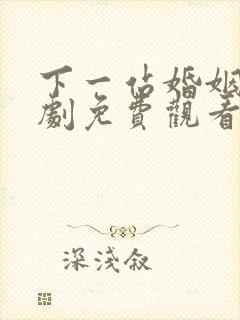 下一站婚姻
劇免費觀看
深淺叙